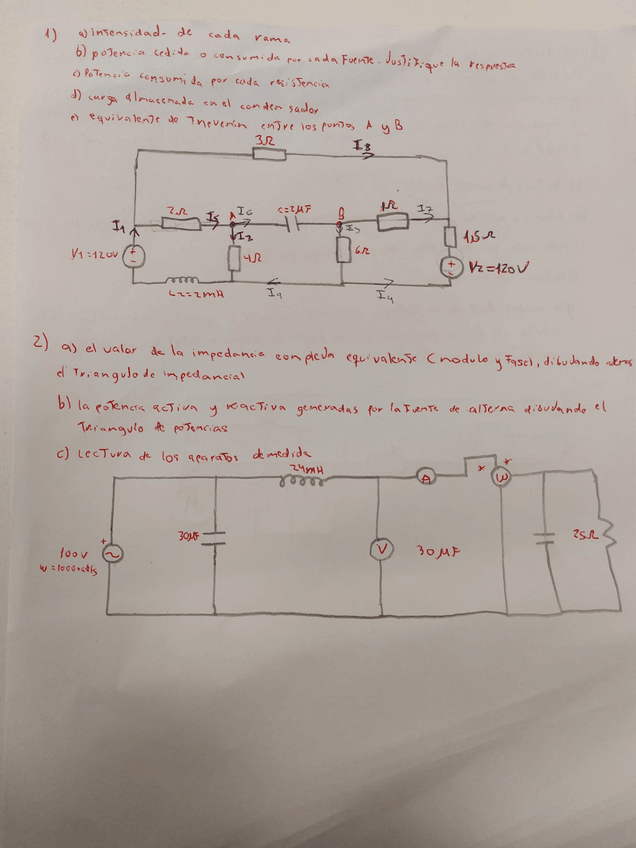 1) a) intensidad de cada rama
b) potencia cedida o consumida por cada Fuente. Justifique la respuesta
c) Potencia consumida por cada resistencia
d) carga almacenada en el conden sador
e) equivalente de Thevenin entre los puntos A y B
3Ω
I8
2Ω
I5
A
I6
C=2μF
B
1Ω
I7
I1
I2
I3
4Ω
6Ω
1,5Ω
V1=120V
V2=120V
L2=2mH
I9
I4
2) a) el valor de la impedancia compleja equivalente (modulo y Fase), dibujando
el Triangulo de impedancial
b) la potencia activa y reactiva generadas por la Fuente de alterna dibudando el
Triangulo de potencias
c) Lectura de los aparatos de medida
24mH
A
W
30μF
V
30μF
25Ω
100V
w=1000rad/s